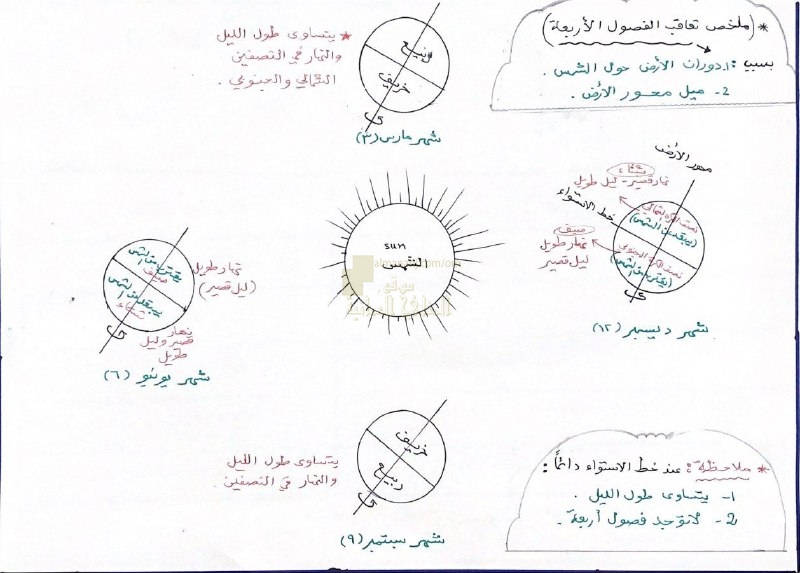 * (ملخص تعاقب الفصول الأربعة)
بسبب: 1. دوران الأرض حول الشمس.
2- ميل محور الأرض.
* يتساوى طول الليل
والنهار في النصفين
الشمالي والجنوبي.
ربيع
خريف
شهر مارس (٣)
محور الأرض
شتاء
نهار قصير - ليل طويل
خط الاستواء
نصف الكرة الشمالي
(يبتعد عن الشمس)
صيف
نهار طويل
ليل قصير
نصف الكرة الجنوبي
(يقترب من الشمس)
شهر ديسمبر (١٢)
sun
الشمس
almanahj.com/om
موقع
المناهج العمانية
يقترب من الشمس
صيف
يبتعد عن الشمس
شتاء
نهار طويل
(ليل قصير)
نهار
قصير وليل
طويل
شهر يونيو (٦)
خريف
ربيع
يتساوى طول الليل
والنهار في النصفين.
شهر سبتمبر (٩)
* ملاحظة: عند خط الاستواء دائماً:
1- يتساوى طول الليل.
2- لا توجد فصول أربعة.